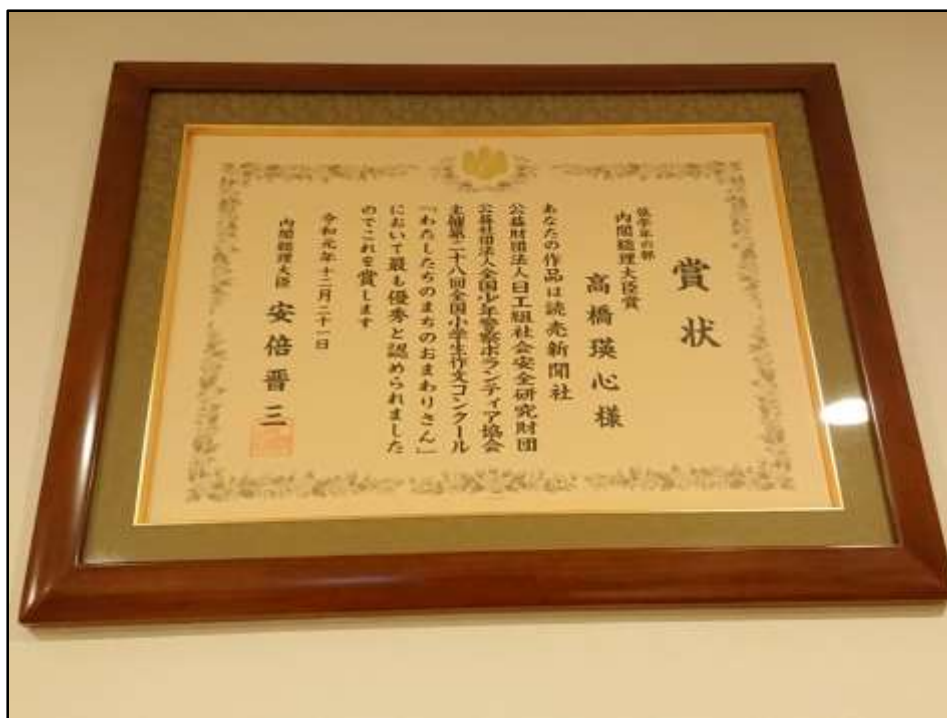 賞状
低学年の部
内閣総理大臣賞
高橋瑛心様
あなたの作品は読売新聞社
公益財団法人日工組社会安全研究財団
公益社団法人全国少年警察ボランティア協会
主催第二十八回全国小学生作文コンクール
「わたしたちのまちのおまわりさん」
において最も優秀と認められました
のでこれを賞します
令和元年十二月二十一日
内閣総理大臣 安倍晋三